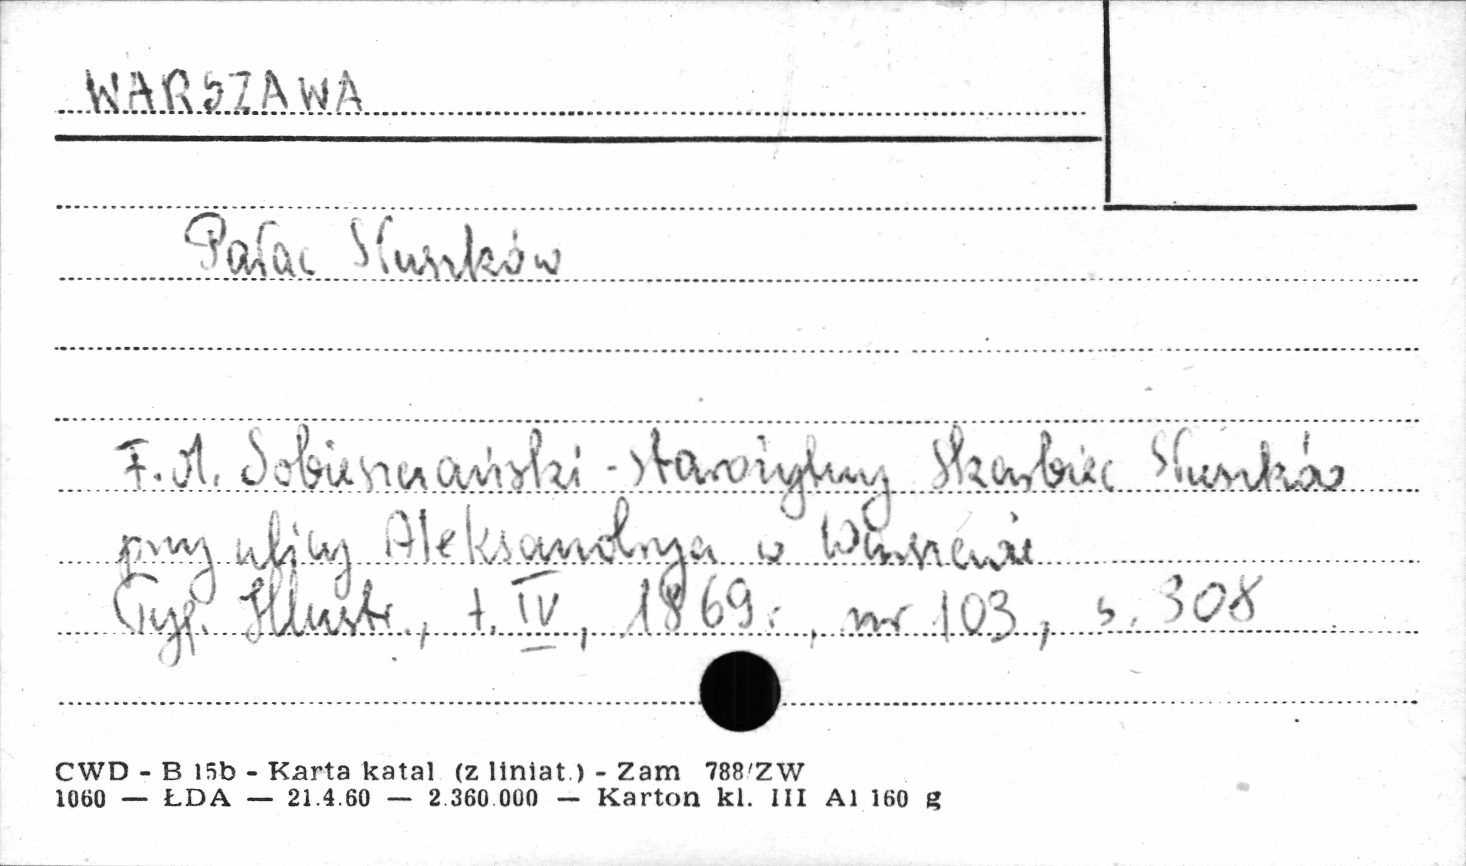 WARSZAWA
Pałac Słuszków
F.M. Sobieszczański - starożytny Skarbiec Słuszków
przy ulicy Aleksandrya w Warszawie
Tyg. Illustr., t. IV, 1869r., nr 103, s. 308
CWD - B 15b - Karta katal. (z liniat.) - Zam 788/ZW
1060 — ŁDA — 21.4.60 — 2.360.000 — Karton kl. III A1 160 g